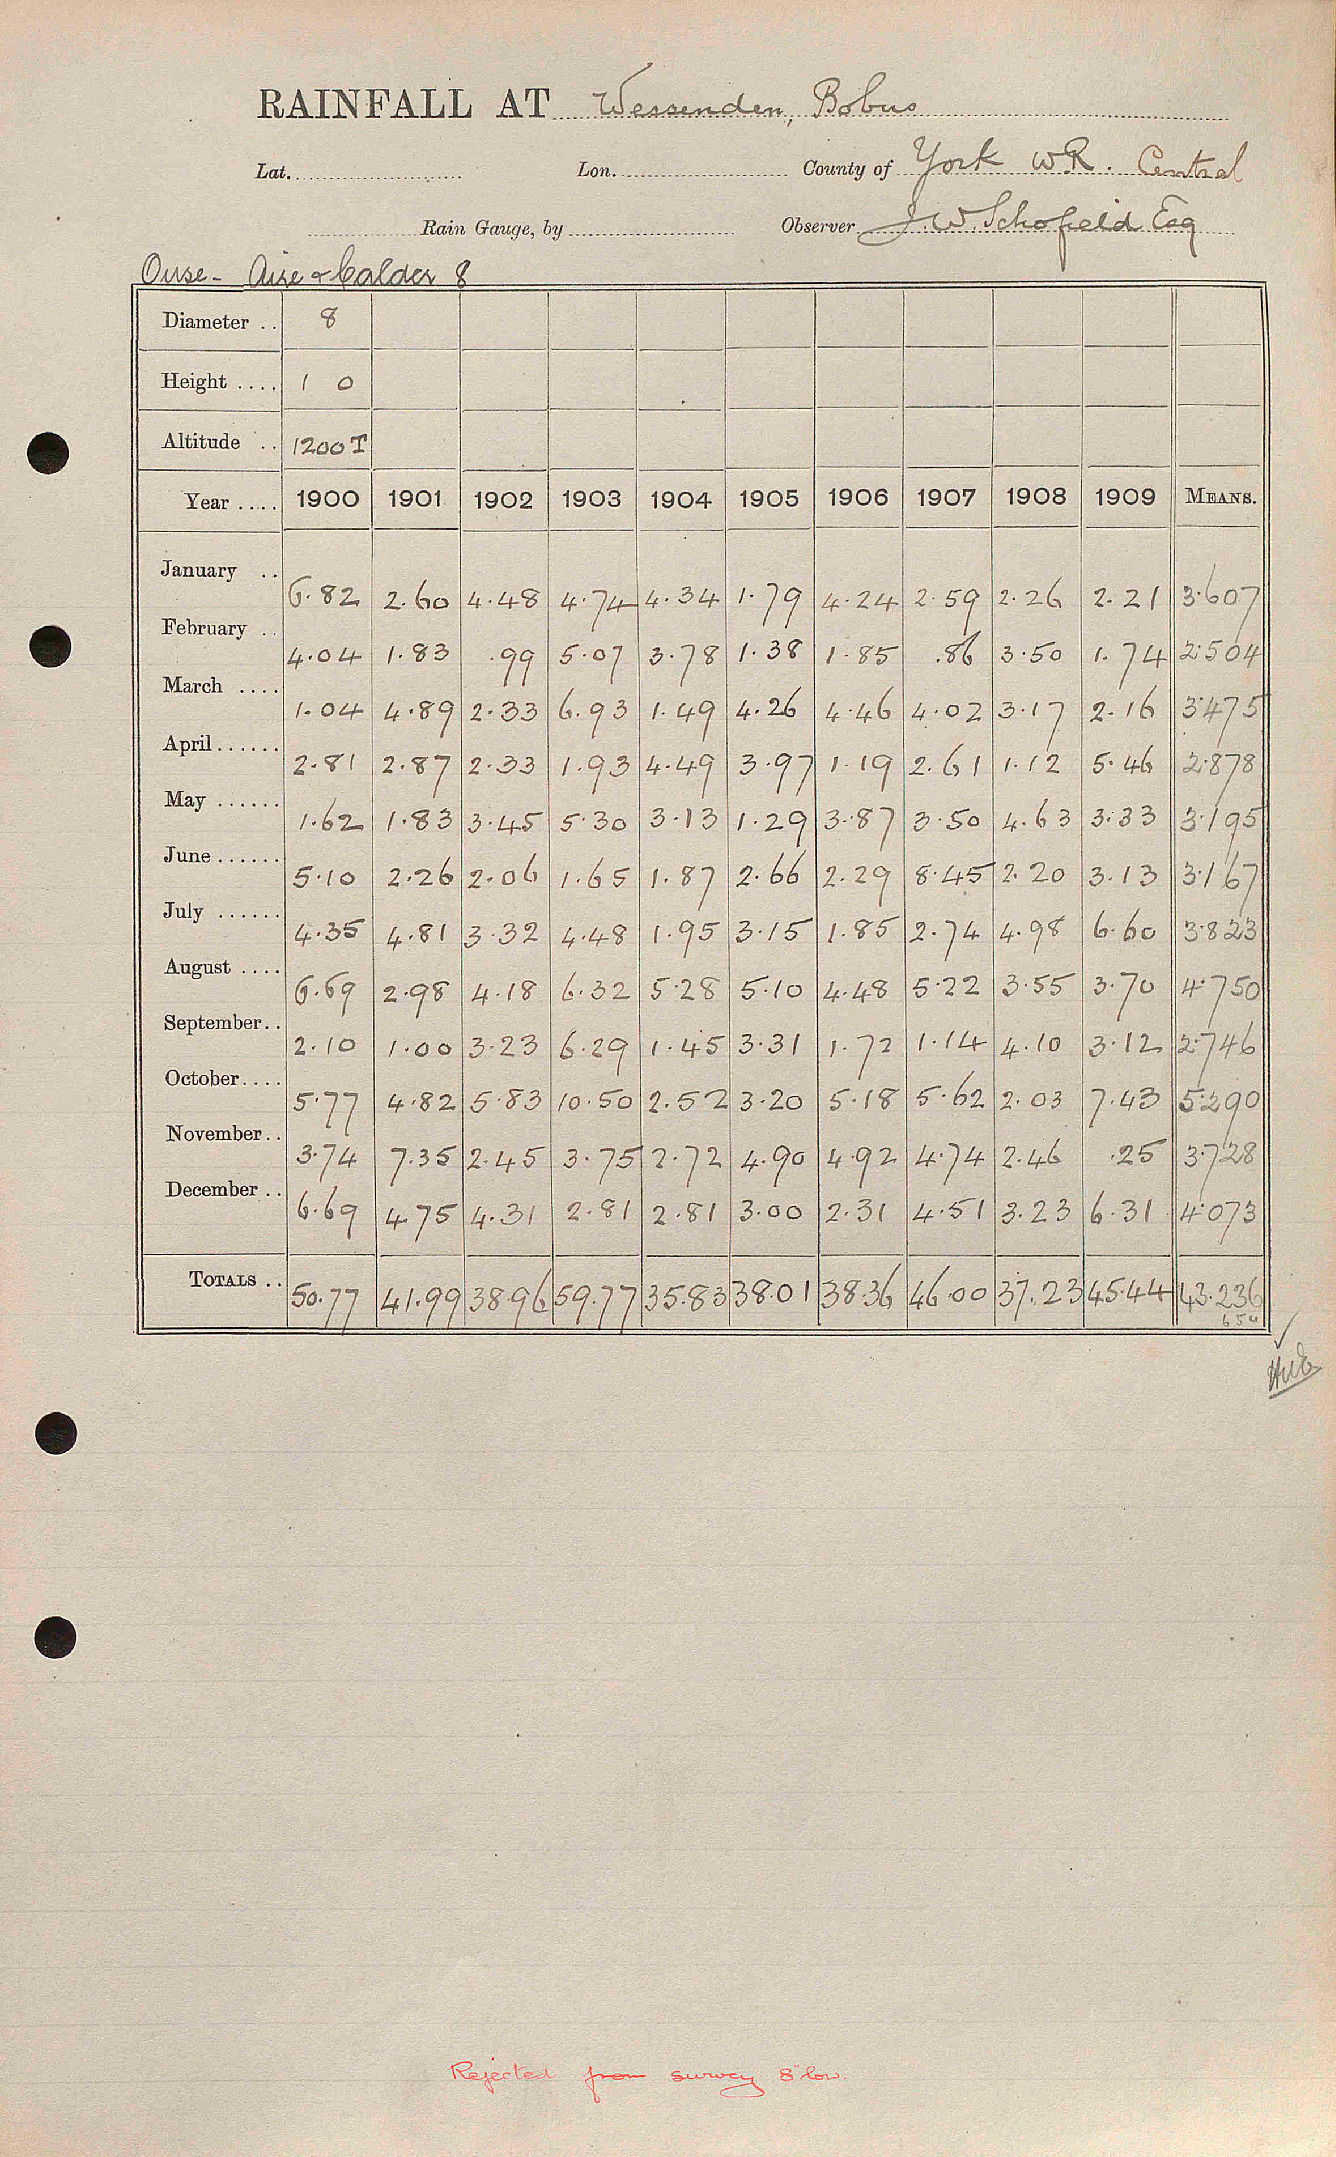 RAINFALL AT Wessenden, Bobus
Lat. Lon. County of York W.R. Central
Rain Gauge, by Observer J. W. Schofield Esq
Ouse - Aire & Calder 8
Diameter .. 8
Height .... 1 0
Altitude .. 1200 T
Year .... 1900 1901 1902 1903 1904 1905 1906 1907 1908 1909 MEANS.
January .. 6.82 2.60 4.48 4.74 4.34 1.79 4.24 2.59 2.26 2.21 3.607
February .. 4.04 1.83 .99 5.07 3.78 1.38 1.85 .86 3.50 1.74 2.504
March .... 1.04 4.89 2.33 6.93 1.49 4.26 4.46 4.02 3.17 2.16 3.475
April ...... 2.81 2.87 2.33 1.93 4.49 3.97 1.19 2.61 1.12 5.46 2.878
May ...... 1.62 1.83 3.45 5.30 3.13 1.29 3.87 3.50 4.63 3.33 3.195
June ...... 5.10 2.26 2.06 1.65 1.87 2.66 2.29 8.45 2.20 3.13 3.167
July ...... 4.35 4.81 3.32 4.48 1.95 3.15 1.85 2.74 4.98 6.60 3.823
August .... 6.69 2.98 4.18 6.32 5.28 5.10 4.48 5.22 3.55 3.70 4.750
September .. 2.10 1.00 3.23 6.29 1.45 3.31 1.72 1.14 4.10 3.12 2.746
October .... 5.77 4.82 5.83 10.50 2.52 3.20 5.18 5.62 2.03 7.43 5.290
November .. 3.74 7.35 2.45 3.75 2.72 4.90 4.92 4.74 2.46 .25 3.728
December .. 6.69 4.75 4.31 2.81 2.81 3.00 2.31 4.51 3.23 6.31 4.073
TOTALS .. 50.77 41.99 38.96 59.77 35.83 38.01 38.36 46.00 37.23 45.44 43.236
Rejected from survey 8" low.